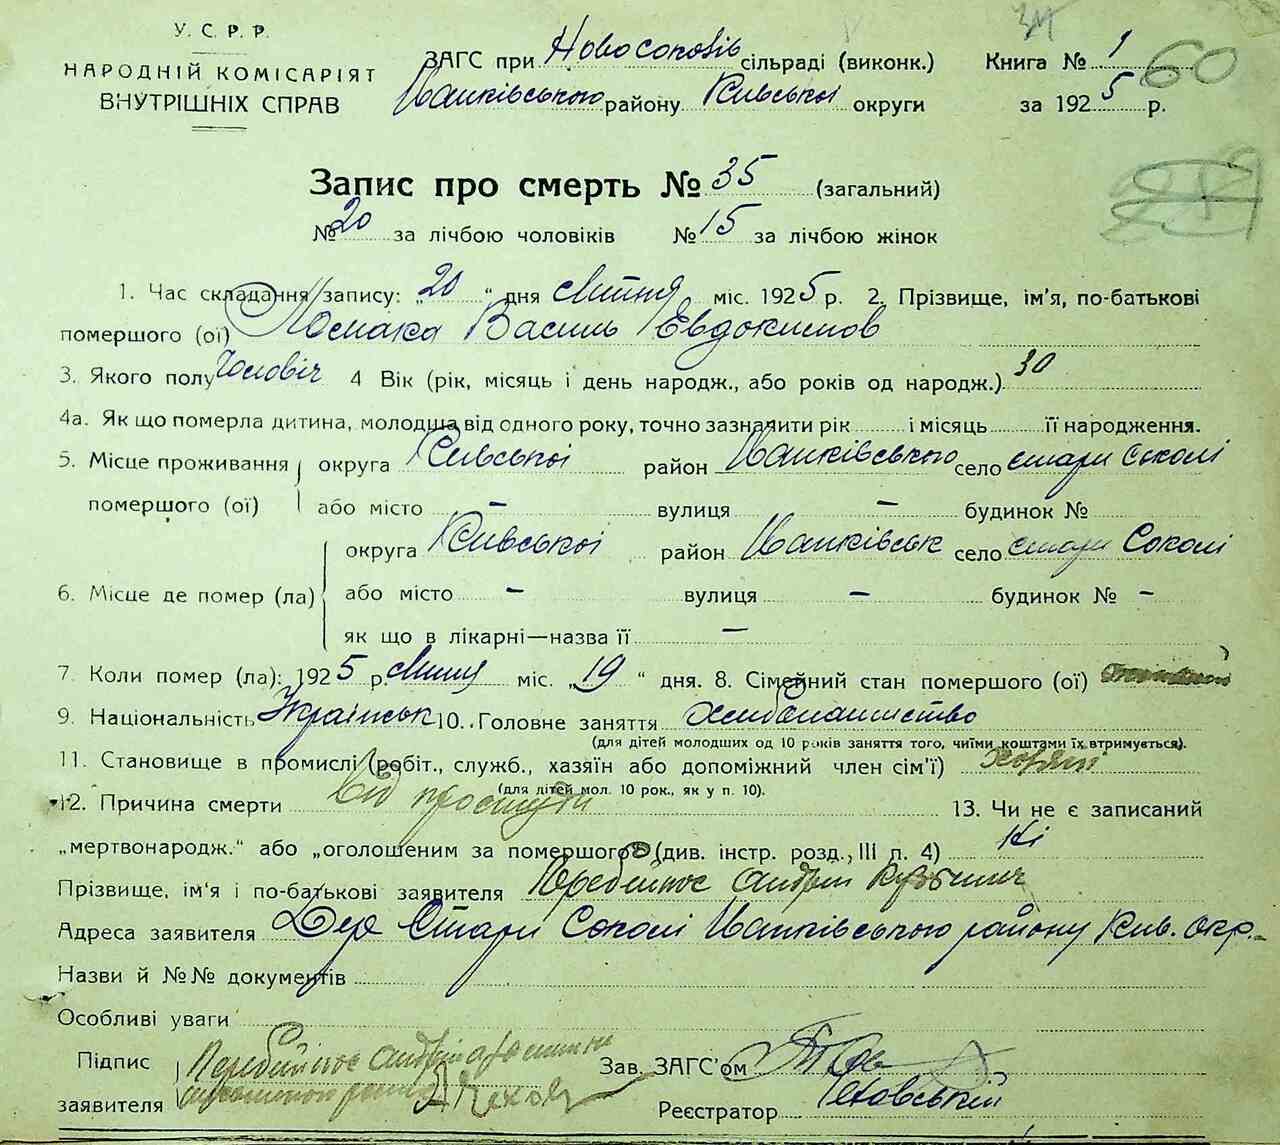 У. С. Р. Р.
НАРОДНІЙ КОМІСАРІЯТ
ВНУТРІШНІХ СПРАВ
ЗАГС при Новосоколів сільраді (виконк.)
Іванківського району Київської округи
Книга № 1
60
за 1925 р.
Запис про смерть № 35 (загальний)
№ 20 за лічбою чоловіків № 15 за лічбою жінок
1. Час складання запису: „20" дня Липня міс. 1925 р. 2. Прізвище, ім'я, по-батькові
помершого (ої) Ломака Василь Евдокимов
3. Якого полу Чоловіч 4 Вік (рік, місяць і день народж., або років од народж.) 30
4а. Як що померла дитина, молодша від одного року, точно зазначити рік і місяць її народження.
5. Місце проживання округа Київської район Іванківського село Стари Соколі
помершого (ої) або місто – вулиця – будинок №
округа Київської район Іванківськ село Стари Соколі
6. Місце де помер (ла) або місто – вулиця – будинок № –
як що в лікарні—назва її –
7. Коли помер (ла): 1925 р. Липня міс. „19" дня. 8. Сімейний стан помершого (ої)
9. Національність Українськ 10. Головне заняття Хлібопашество
(для дітей молодших од 10 років заняття того, чиїми коштами їх втримується).
11. Становище в промислі (робіт., служб., хазяїн або допоміжний член сім'ї)
(для дітей мол. 10 рок., як у п. 10).
12. Причина смерти Від простути 13. Чи не є записаний
„мертвонародж." або „оголошеним за помершого" (див. інстр. розд., III п. 4) Ні
Прізвище, ім'я і по-батькові заявителя Перебийнос Андрій Кузьмич
Адреса заявителя Дер Стари Соколі Іванківського району Київ. Окр.
Назви й №№ документів
Особливі уваги
Підпис Перебийнос Андрій
заявителя
Зав. ЗАГС'ом
Реєстратор